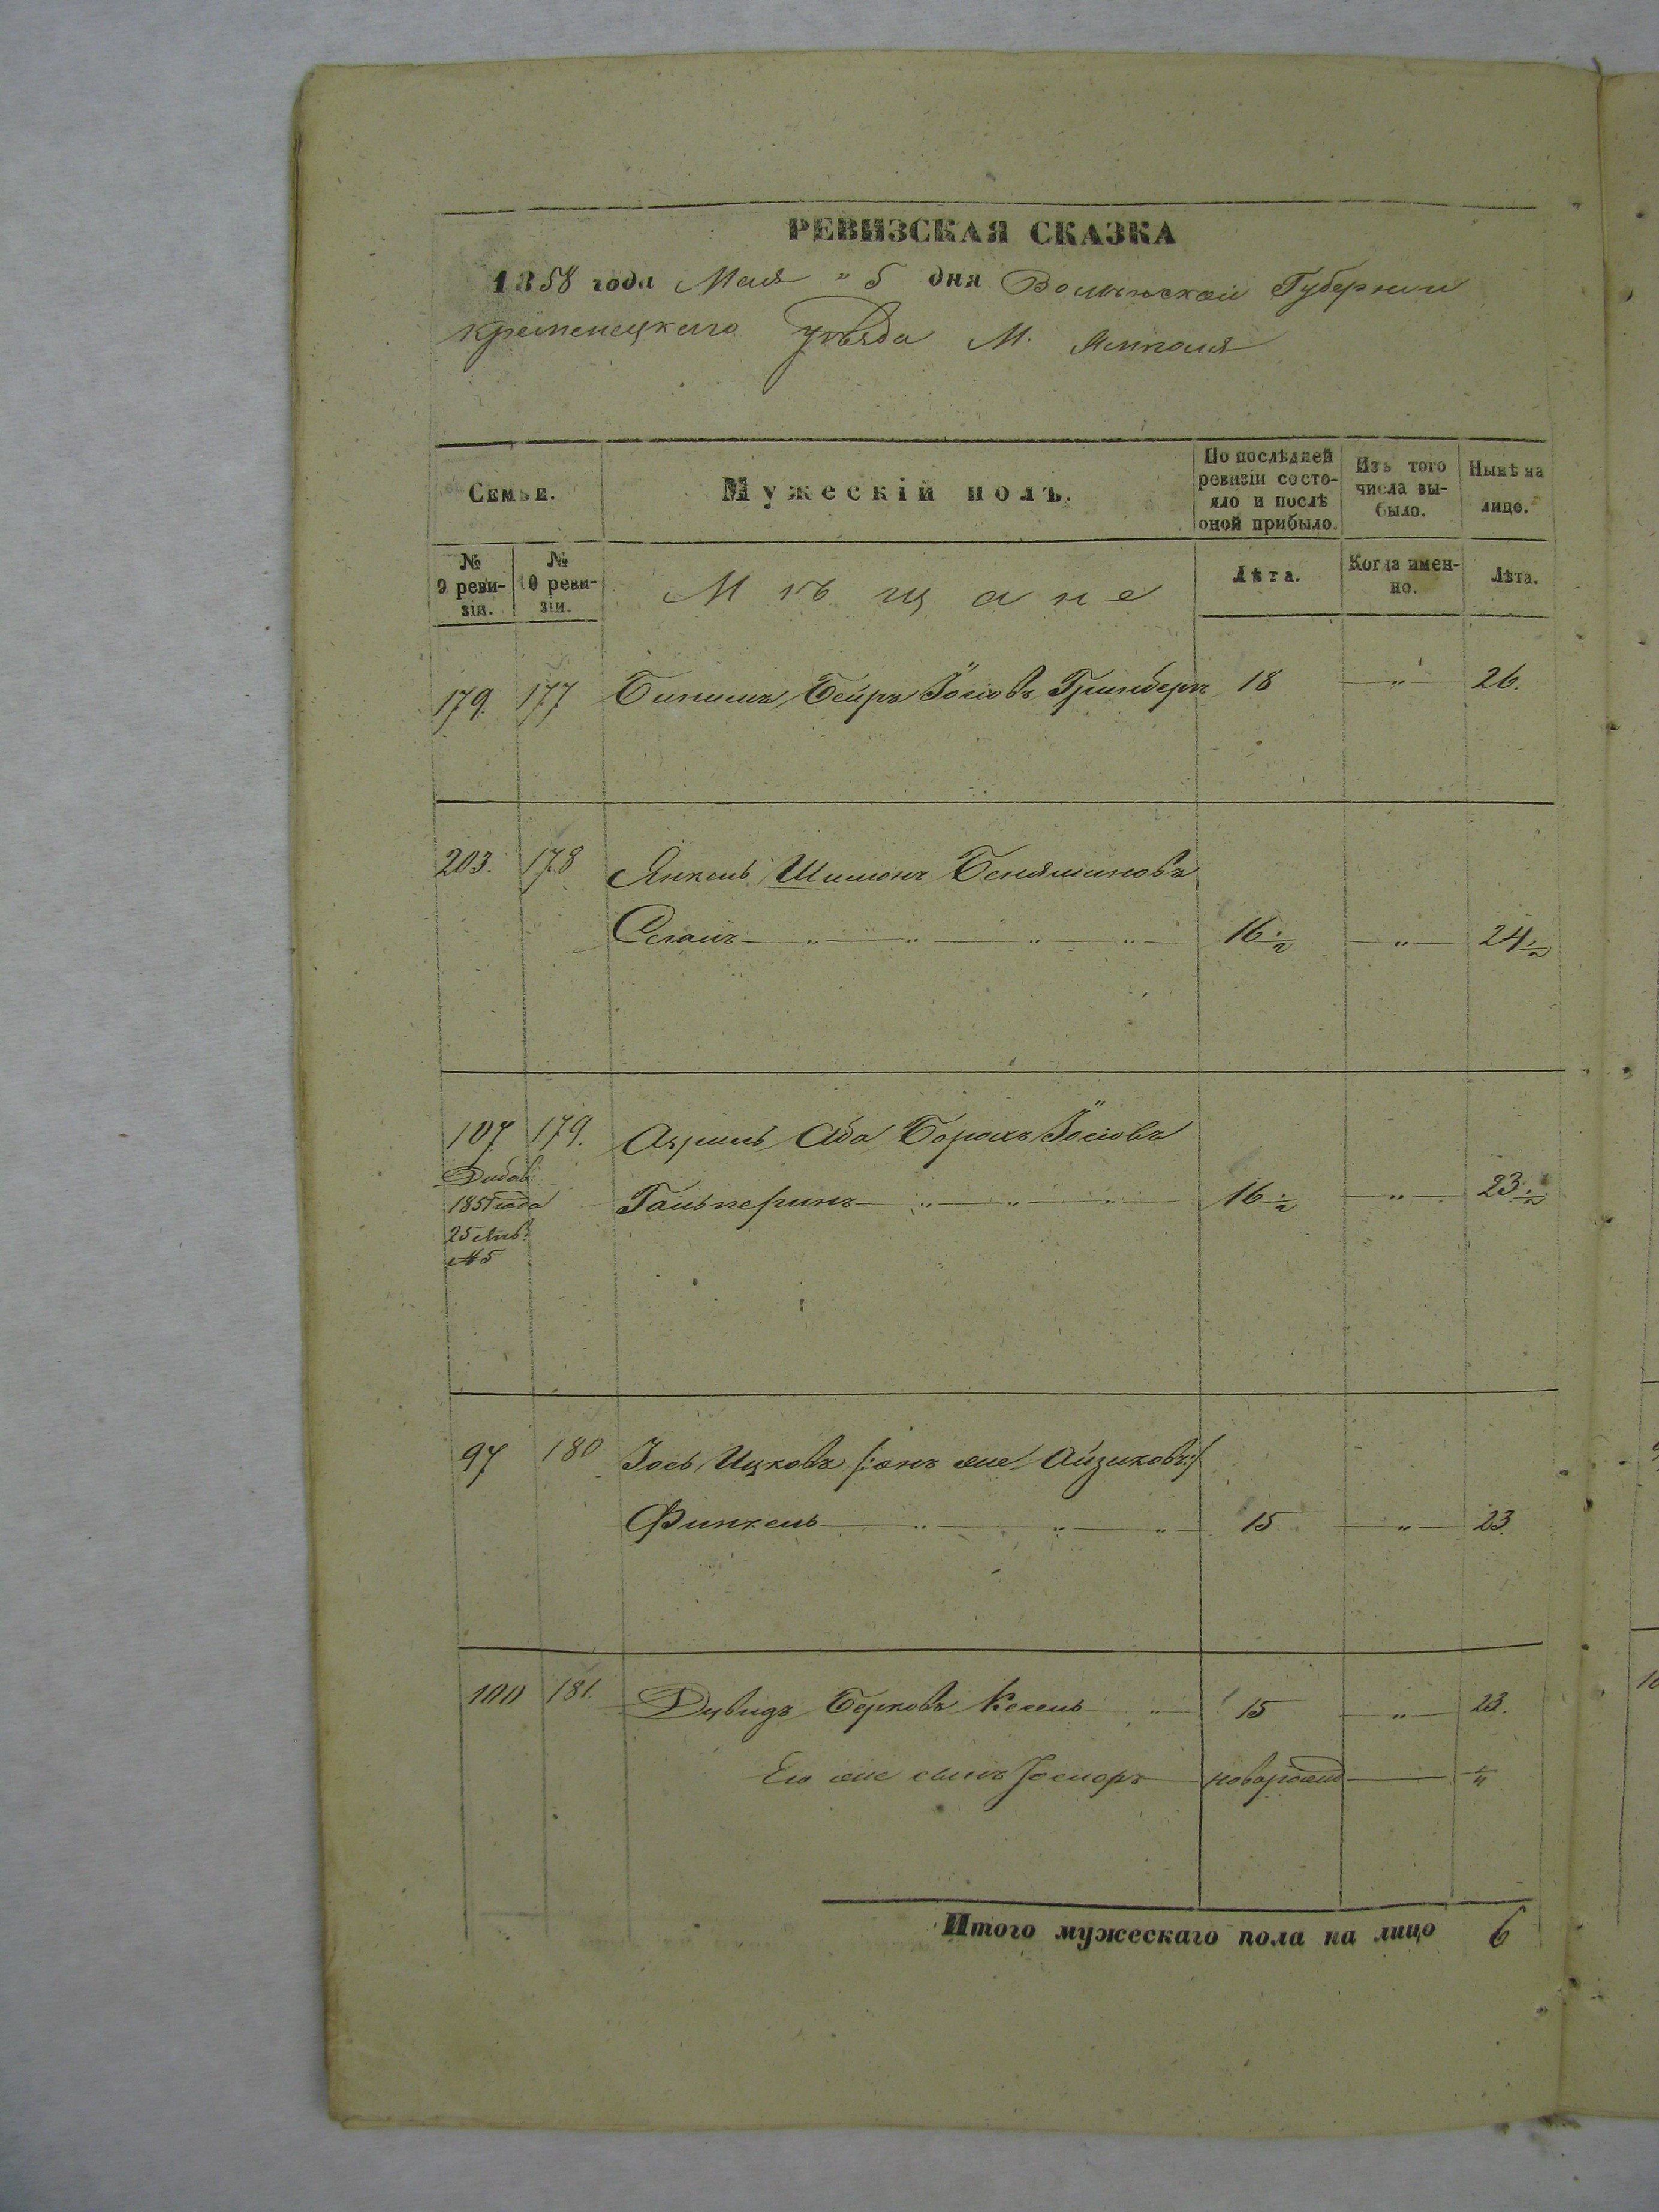 РЕВИЗСКАЯ СКАЗКА
1858 года Мая " 5 дня Волынской Губернии
Кременецкаго уѣзда М. Ямполя
Семьи.
Мужескій полъ.
По послѣдней ревизіи состояло и послѣ оной прибыло.
Изъ того числа выбыло.
Нынѣ на лицо.
№ 9 ревизіи.
№ 10 ревизіи.
Мѣщане
Лѣта.
Когда именно.
Лѣта.
179. 177 Бейръ Іосіовъ Гринбергъ 18 — " — 26.
203. 178 Янкель Шимонъ Беняминовъ
Сеганъ — " — " — " — " — 16 1/2 — " — 24 1/2
107 179. Азриль Аба Борохъ Іосіовъ
1851 года
Гальперинъ — " — " — " — 16 1/2 — " — 23 1/2
25 Янв.
№ 5
97 180 Іось Ицковъ /:онъ же Айзиковъ:/
Финкель — " — " — " — 15 — " — 23
100 181. Дувидъ Берковъ Кесель — " — 15 — " — 23.
Его же сынъ новорожд — "
Итого мужескаго пола на лицо 6